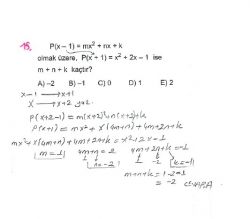 15. P(x − 1) = mx² + nx + k
olmak üzere, P(x + 1) = x² + 2x − 1 ise
m + n + k kaçtır?
A) −2 B) −1 C) 0 D) 1 E) 2
x−1 → x+1
x → x+2
P(x+2−1) = m(x+2)²+n(x+2)+k
P(x+1) = mx² + x(4m+n)+4m+2n+k
mx²+x(4m+n)+4m+2n+k = x²+2x−1
m=1 4m+n=2 4m+2n+k=−1
n=−2 k=−1
m+n+k=1−2−1
= −2